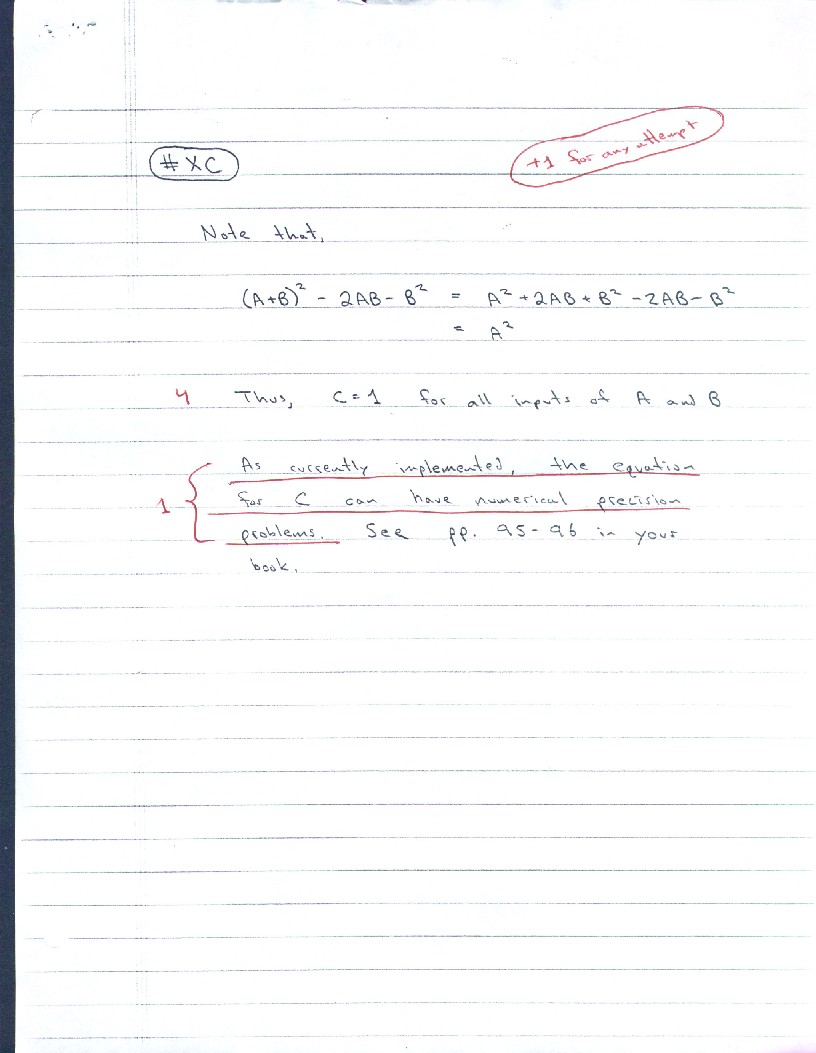 # XC
+1 for any attempt
Note that,
(A+B)² - 2AB - B² = A² + 2AB + B² - 2AB - B²
= A²
4 Thus, C=1 for all inputs of A and B
As currently implemented, the equation
1 { for C can have numerical precision
problems. See pp. 95-96 in your
book.